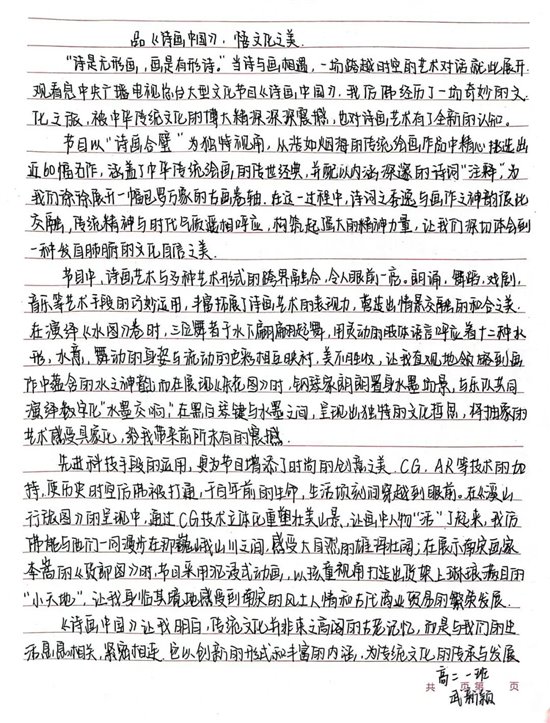 品《诗画中国》，悟文化之美.
“诗是无形画，画是有形诗。”当诗与画相遇，一场跨越时空的艺术对话就此展开.
观看完中央广播电视总台大型文化节目《诗画中国》，我仿佛经历了一场奇妙的文
化之旅，被中华传统文化的博大精深深深震撼，也对诗画艺术有了全新的认知。
节目以“诗画合璧”为独特视角，从浩如烟海的传统绘画作品中精心挑选出
近60幅五作，涵盖了中华传统绘画的传世经典，并配以内涵深邃的诗词“注释”，为
我们徐徐展开一幅包罗万象的古画卷轴。在这一过程中，诗词之奇逸与画作之神韵彼此
交融，传统精神与时代气质遥相呼应，构筑起强大的精神力量，让我们深切体会到
一种发自肺腑的文化自信之美.
节目中，诗画艺术与多种艺术形式的跨界融合，令人眼前一亮。朗诵，舞蹈，戏剧，
音乐等艺术手段的巧妙运用，丰富拓展了诗画艺术的表现力，营造出情景交融的和合之美.
在演绎《水图》卷时，三位舞者于水下翩翩起舞，用灵动的肢体语言呼应着十二种水
形，水意，舞动的身姿与流动的色彩相互映衬，美不胜收，让我直观地领略到画
作中蕴含的水之神韵；而在展现《六花图》时，钢琴家朗朗置身水墨场景，与乐队共同
演绎数字化“水墨交响。”在黑白琴键与水墨之间，呈现出独特的文化哲思，将抽象的
艺术感受具象化，给我带来前所未有的震撼.
先进科技手段的运用，更为节目增添了时尚的创意之美. CG、AR等技术的加
持，使历史时空仿佛被打通，千百年前的生命，生活顷刻间穿越到眼前。在《溪山
行旅图》的呈现中，通过CG技术立体化重塑壮美山景，让画中人物“活”了起来，我仿
佛能与他们一同漫步在那巍峨山川之间，感受大自然的雄浑壮阔；在展示南宋画家
李嵩的《货郎图》时，节目采用沉浸式动画，以孩童视角打造出货架上琳琅满目的
“小天地”，让我身临其境地感受到南宋的风土人情和古代商业贸易的繁荣发展.
《诗画中国》让我明白，传统文化并非束之高阁的古老记忆，而是与我们的生
活息息相关，紧密相连. 它以创新的形式和丰富的内涵，为传统文化的传承与发展
高二一班
共 页 第 页
武新颖